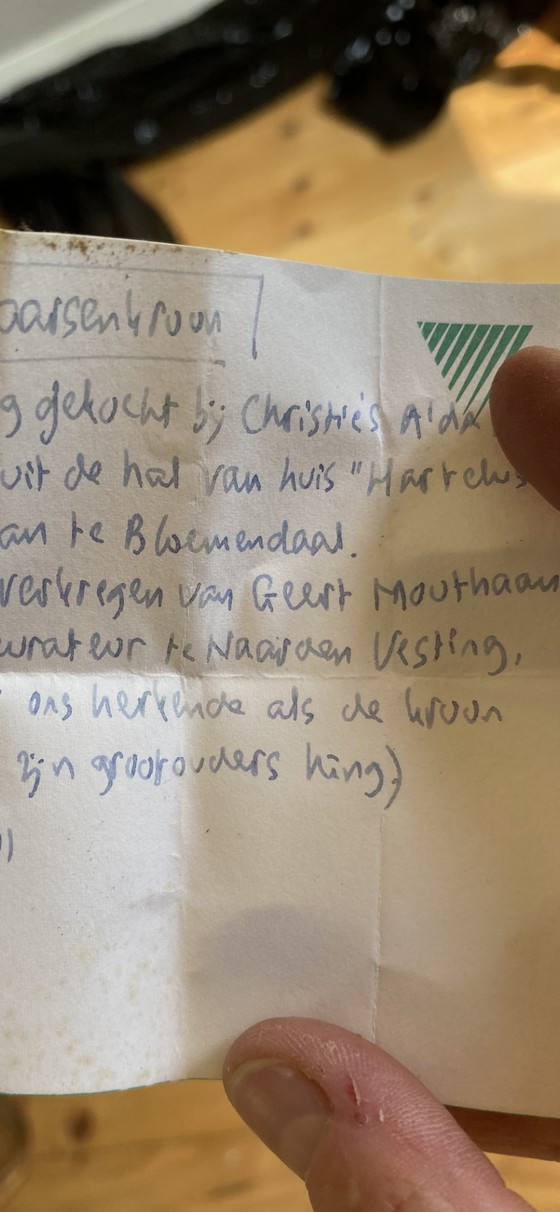 aarsenkroon
g gekocht bij Christie's A'da
uit de hal van huis "Hartelus
an te Bloemendaal.
verkregen van Geert Mouthaan
urateur te Naarden Vesting,
ons herkende als de kroon
zijn grootouders hing)